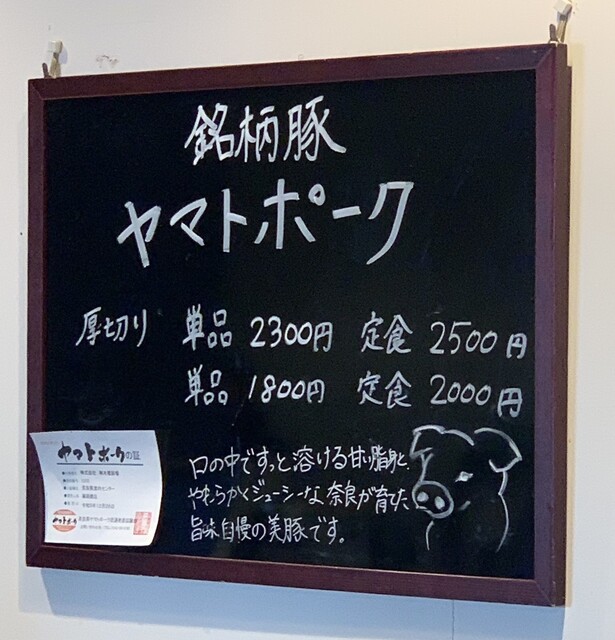 銘柄豚
ヤマトポーク
厚切り 単品 2300円 定食 2500円
単品 1800円 定食 2000円
口の中ですっと溶ける甘い脂身と、
やわらかくジューシーな、奈良が育てた、
旨味自慢の美豚です。
ヤマトポークの証
ヤマトポーク